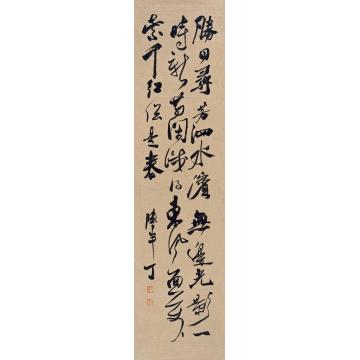 勝日尋芳泗水濱無邊光影一
時新等閒識得東風面萬
紫千紅總是春
陳半丁